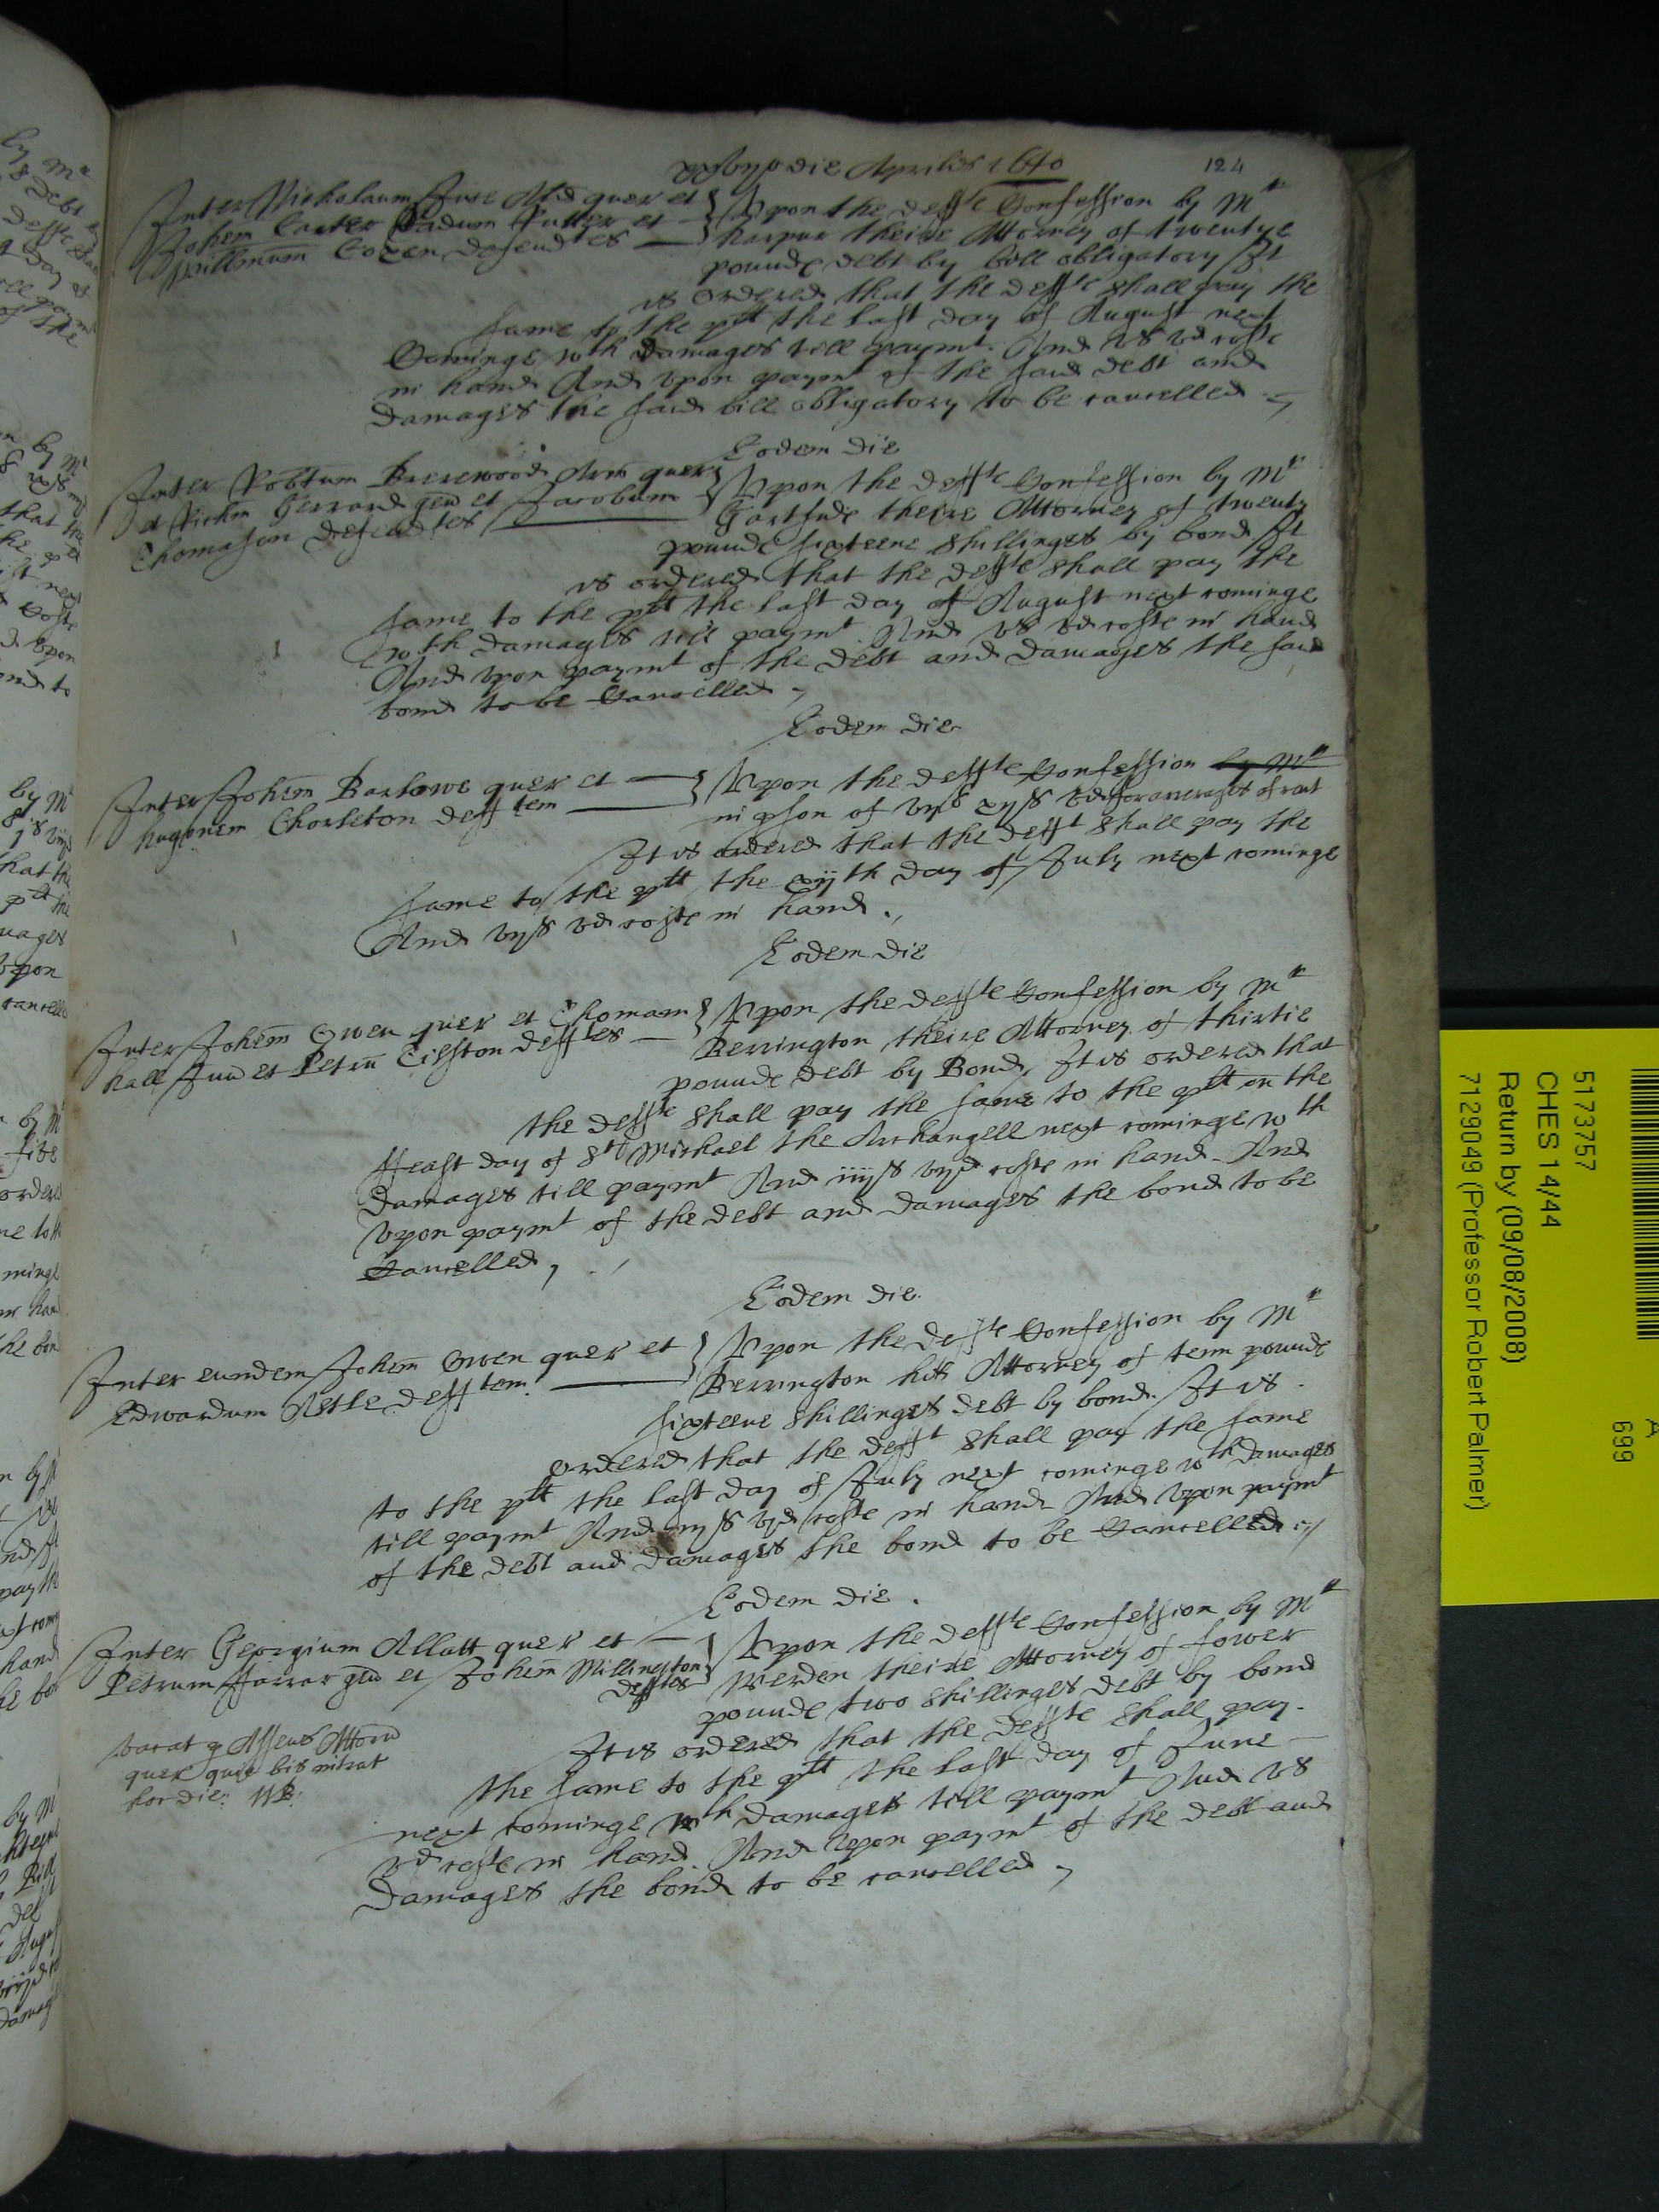 die Aprilis 1640
124
Inter Nicholaum Ince Ald quer et
Johem Carter Adum Futter et
Willmum Cozen defendtes
Upon the defftes Confession by Mr
harpur theire Attorney of twentye
pounds debt by bill obligatory It
is ordered that the defftes shall pay the
same to the plt the last day of August next
Cominge wth damages till paymt. And vs vd coste
in hand And vpon paymt of the said debt and
damages the said bill obligatory to be cancelled
Eodem die
Inter Robtum Brerewood Arm quer
et Richm Gerrard gen et Jacobum
Thomason defendtes
Upon the defftes Confession by Mr
Gartside theire Attorney of twenty
pounds sixteene shillinges by bond It
is ordered that the defftes shall pay the
same to the plt the last day of August next cominge
wth damages till paymt. And vs vd coste in hand
And vpon paymt of the debt and damages the said
bond to be Cancelled
Eodem die
Inter Johem Barlowe quer et
hugonem Chorleton defftem
Upon the defftes Confession by Mr
in pson of for arrerages of rent
It is ordered that the defft shall pay the
same to the plt the xijth day of July next cominge
And vijs vd coste in hand.
Eodem die
Inter Johem Owen quer et Thomam
hall Jun et Petru Eilston defftes
Upon the defftes Confession by Mr
Berrington theire Attorney of thirtie
pounds debt by Bond, It is ordered that
the defftes shall pay the same to the plt on the
ffeast day of St Michael the Archangell next cominge wth
damages till paymt And iiijs vjd coste in hand. And
Vpon paymt of the debt and damages the bond to be
Cancelled,
Eodem die.
Inter eundem Johem Owen quer et
Edwardum Astle defftem.
Upon the defftes Confession by Mr
Berrington his Attorney of tenn pounds
sixteene shillinges debt by bond. It is
ordered that the defft shall pay the same
to the plt the last day of July next cominge wth damages
till paymt And vjd coste in hand And Vpon paymt
of the debt and damages the bond to be Cancelled
Eodem die.
Inter Georgium Allatt quer et
Petrum ffarrar gen et Johem Millington
defftes
Upon the defftes Confession by Mr
Werden theire Attorney of fower
pounds two shillinges debt by bond
It is ordered that the defftes shall pay
the same to the plt the last day of June
next cominge wth damages till paymt And vs
vd coste in hand. And Vpon paymt of the debt and
damages the bond to be cancelled
vacat p Assens Attorn
quer quia bis intrat
hoc die:
5173757
CHES 14/44
Return by (09/08/2008)
7129049 (Professor Robert Palmer)
A
699